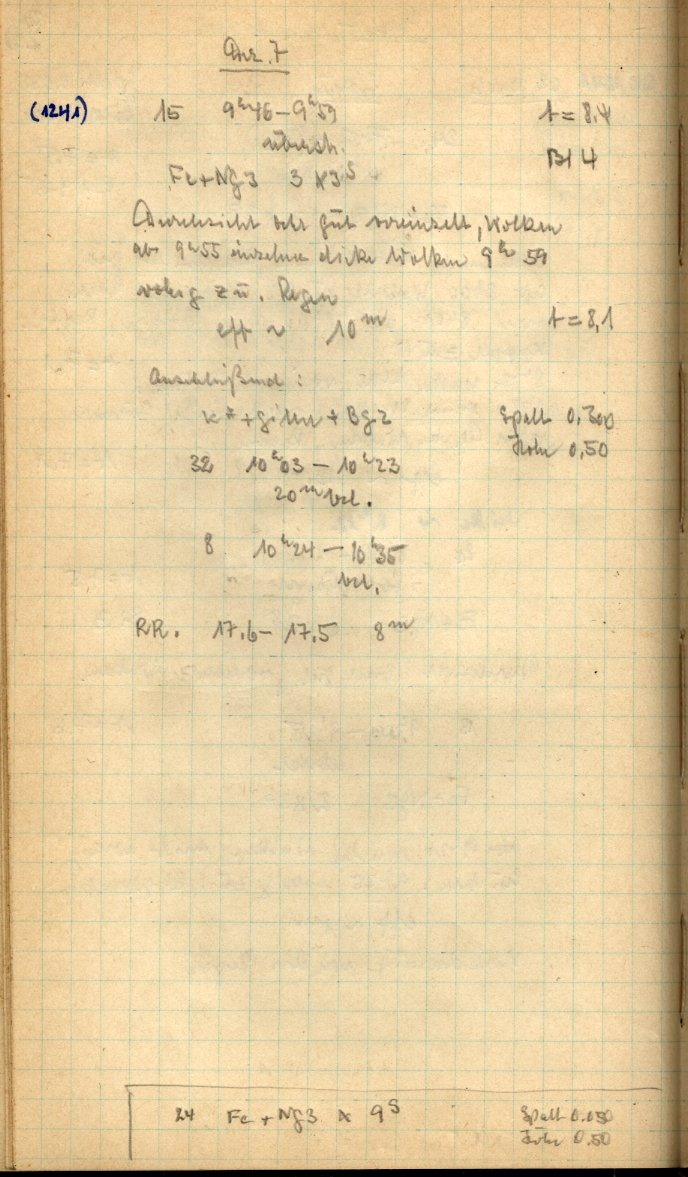 7
(1241) 15 9h46 – 9h59 t = 8,4
übersch. Bl 4
Fe + Ng3 3 x 3s
Durchsicht sehr gut vereinzelt, Wolken
ab 9h55 einzelne dicke Wolken 9h 59
völlig zu. Regen
eff ~ 10m t = 8,1
Anschließend :
+ + Bg2 Spalt 0,300
Höhe 0,50
32 10h03 – 10h23
20m bel.
8 10h24 – 10h35
bel.
RR. 17.6 – 17.5 8m
24 Fe + Ng3 x 9s Spalt 0.050
Höhe 0.50